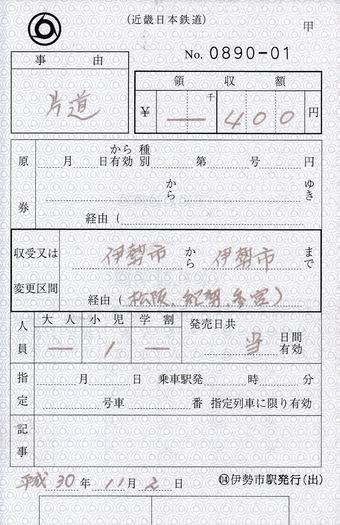 (近畿日本鉄道)
甲
No. 0890-01
事由
片道
領収額
千
¥ — 400 円
原券
から 種
月 日有効 別 第 号 円
から ゆき
経由 (
収受又は変更区間
伊勢市 から 伊勢市 まで
経由 (松阪、紀勢、参宮)
人員
大人 小児 学割
— 1 —
発売日共
当 日間有効
指定
月 日 乗車駅発 時 分
号車 番 指定列車に限り有効
記事
平成 30 年 11 月 2 日
⑭伊勢市駅発行(出)